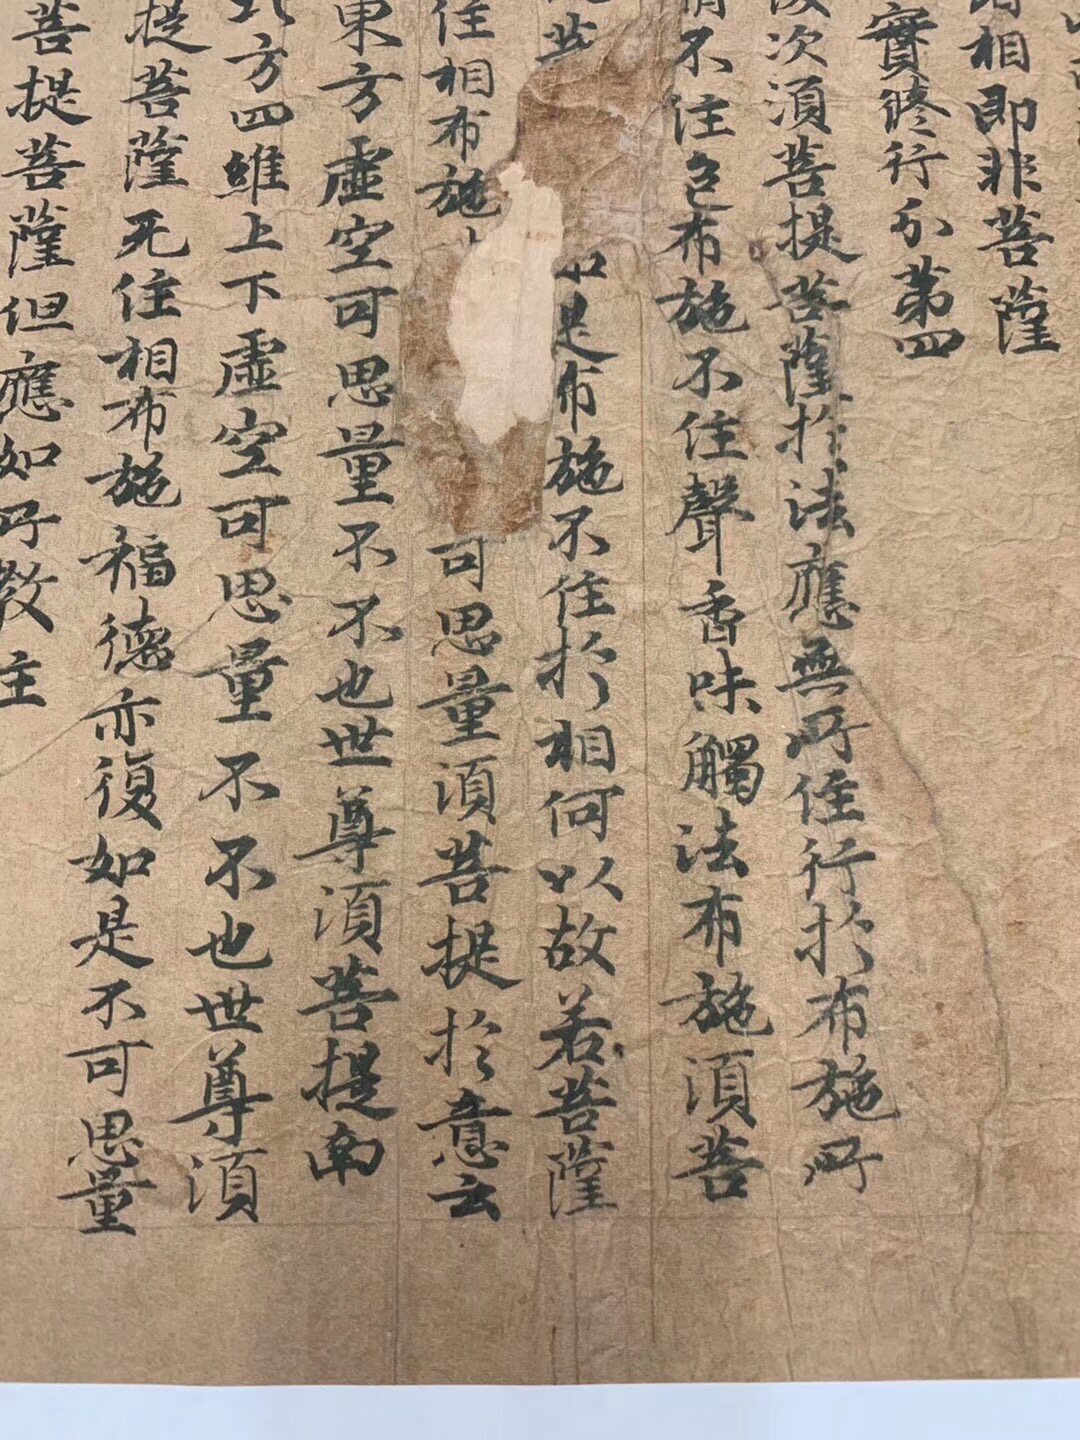 相即非菩薩
實修行分第四
次須菩提菩薩於法應無所住行於布施所
不住色布施不住聲香味觸法布施須菩
是布施不住於相何以故若菩薩
住相布施可思量須菩提於意云
東方虛空可思量不不也世尊須菩提南
方四維上下虛空可思量不不也世尊須
提菩薩无住相布施福德亦復如是不可思量
菩提菩薩但應如所教住